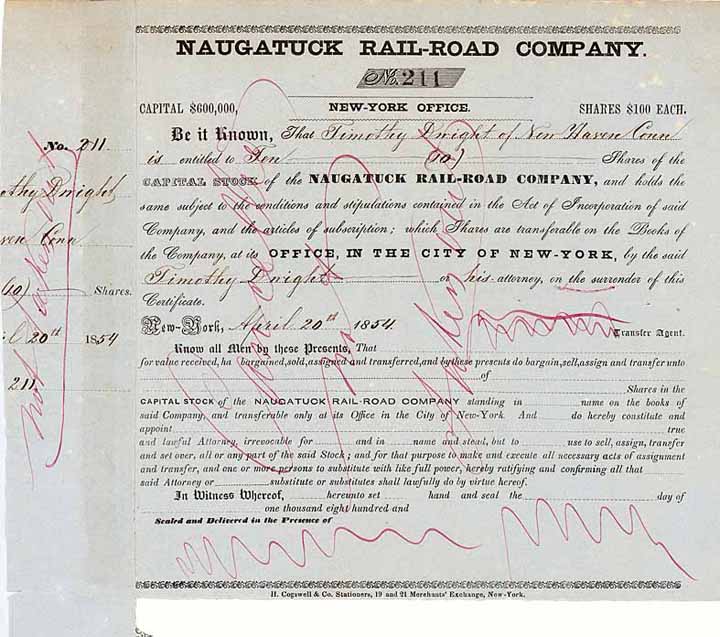 NAUGATUCK RAIL-ROAD COMPANY.
No. 211
CAPITAL $600,000, NEW-YORK OFFICE. SHARES $100 EACH.
Be it Known, That Timothy Dwight of New Haven Conn
is entitled to Ten (10) Shares of the
CAPITAL STOCK of the NAUGATUCK RAIL-ROAD COMPANY, and holds the
same subject to the conditions and stipulations contained in the Act of Incorporation of said
Company, and the articles of subscription; which Shares are transferable on the Books of
the Company, at its OFFICE, IN THE CITY OF NEW-YORK, by the said
Timothy Dwight or his attorney, on the surrender of this
Certificate.
New-York, April 20th 1854
Transfer Agent.
Know all Men by these Presents, That
for value received, ha bargained, sold, assigned and transferred, and by these presents do bargain, sell, assign and transfer unto
of
Shares in the
CAPITAL STOCK of the NAUGATUCK RAIL-ROAD COMPANY standing in name on the books of
said Company, and transferable only at its Office in the City of New-York. And do hereby constitute and
appoint true
and lawful Attorney, irrevocable for and in name and stead, but to use to sell, assign, transfer
and set over, all or any part of the said Stock; and for that purpose to make and execute all necessary acts of assignment
and transfer, and one or more persons to substitute with like full power, hereby ratifying and confirming all that
said Attorney or substitute or substitutes shall lawfully do by virtue hereof.
In Witness Whereof, hereunto set hand and seal the day of
one thousand eight hundred and
Sealed and Delivered in the Presence of
H. Cogswell & Co. Stationers, 19 and 21 Merchants' Exchange, New-York.
No. 211
othy Dwight
ven Conn
(10) Shares.
l 20th 1854
211
not taken out
Cancelled
not
taken out